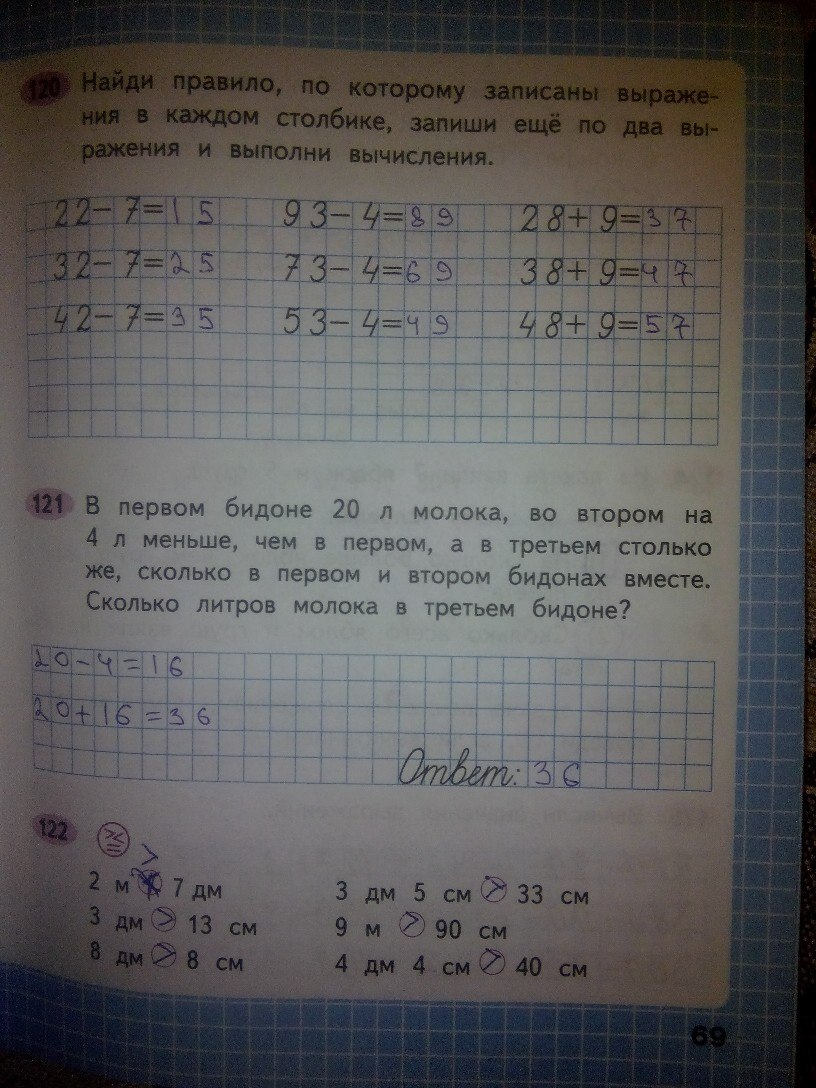 120 Найди правило, по которому записаны выраже-
ния в каждом столбике, запиши ещё по два вы-
ражения и выполни вычисления.
22-7=15 93-4=89 28+9=37
32-7=25 73-4=69 38+9=47
42-7=35 53-4=49 48+9=57
121 В первом бидоне 20 л молока, во втором на
4 л меньше, чем в первом, а в третьем столько
же, сколько в первом и втором бидонах вместе.
Сколько литров молока в третьем бидоне?
20-4=16
20+16=36
Ответ: 36
122 > < =
>
2 м 7 дм 3 дм 5 см > 33 см
3 дм > 13 см 9 м > 90 см
8 дм > 8 см 4 дм 4 см > 40 см
69